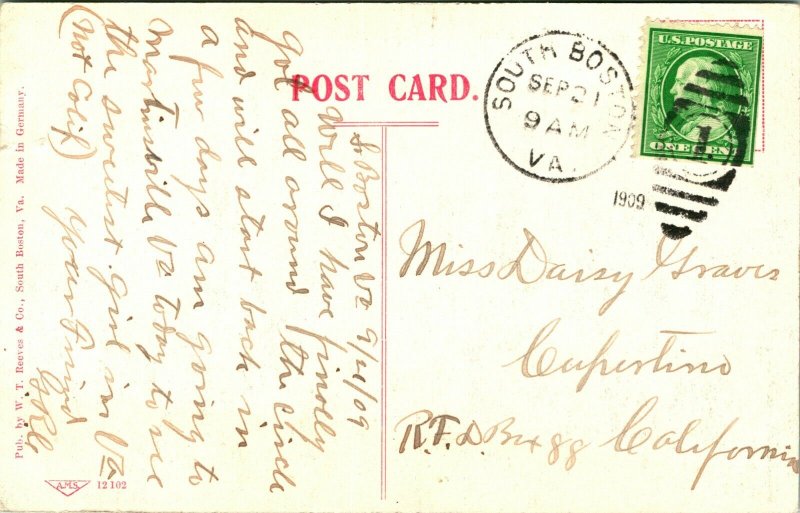 POST CARD.
SOUTH BOSTON
SEP 21
9 AM
VA.
1909
U.S. POSTAGE
ONE CENT
1
So Boston Va 9/21/09
Well I have finally
got all around the circle
and will start back in
a few days am going to
Martinsville Va today to see
the sweetest girl in Va
(Not Calif) Your Friend
Miss Daisy Graves
Cupertino
R.F.D. Box 88 California
Pub. by W. T. Reeves & Co., South Boston, Va. Made in Germany.
A.M.S. 12 102